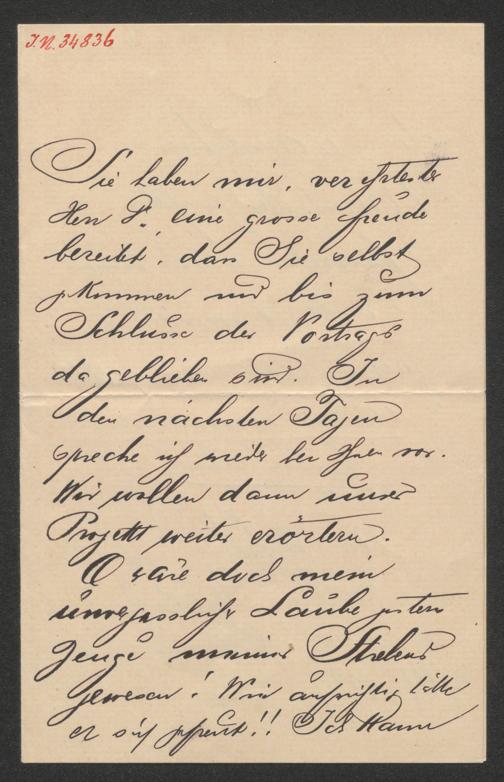 I.N. 34836
Sie haben mir, verehrtester
Herr P. eine grosse Freude
bereitet, dass Sie selbst
gekommen und bis zum
Schlusse des Vortrags
da geblieben sind. In
den nächsten Tagen
spreche ich wieder bei Ihnen vor.
Wir wollen dann unser
Projekt weiter erörtern.
O wäre doch mein
unvergesslicher Laube gestern
Zeuge meines Strebens
gewesen! Wie aufrichtig hätte
er sich gefreut!! Ich kann